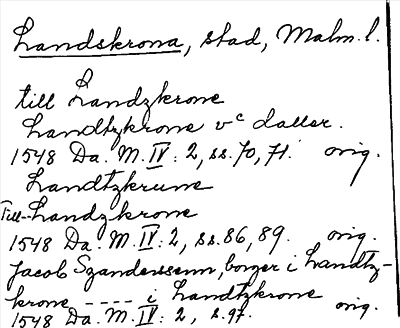 Landskrona, stad, Malm. l.
till Landzkrone
Landtzkrone vᶜ daller.
1548 Da. M. IV: 2, ss. 70, 71. orig.
Landtzkrune
Till Landzkrone
1548 Da. M. IV: 2, ss. 86, 89. orig.
Jacob Szanderssenn, borger i Landtz-
krone ---- i Landtzkrone
1548 Da. M. IV: 2, s. 97. orig.